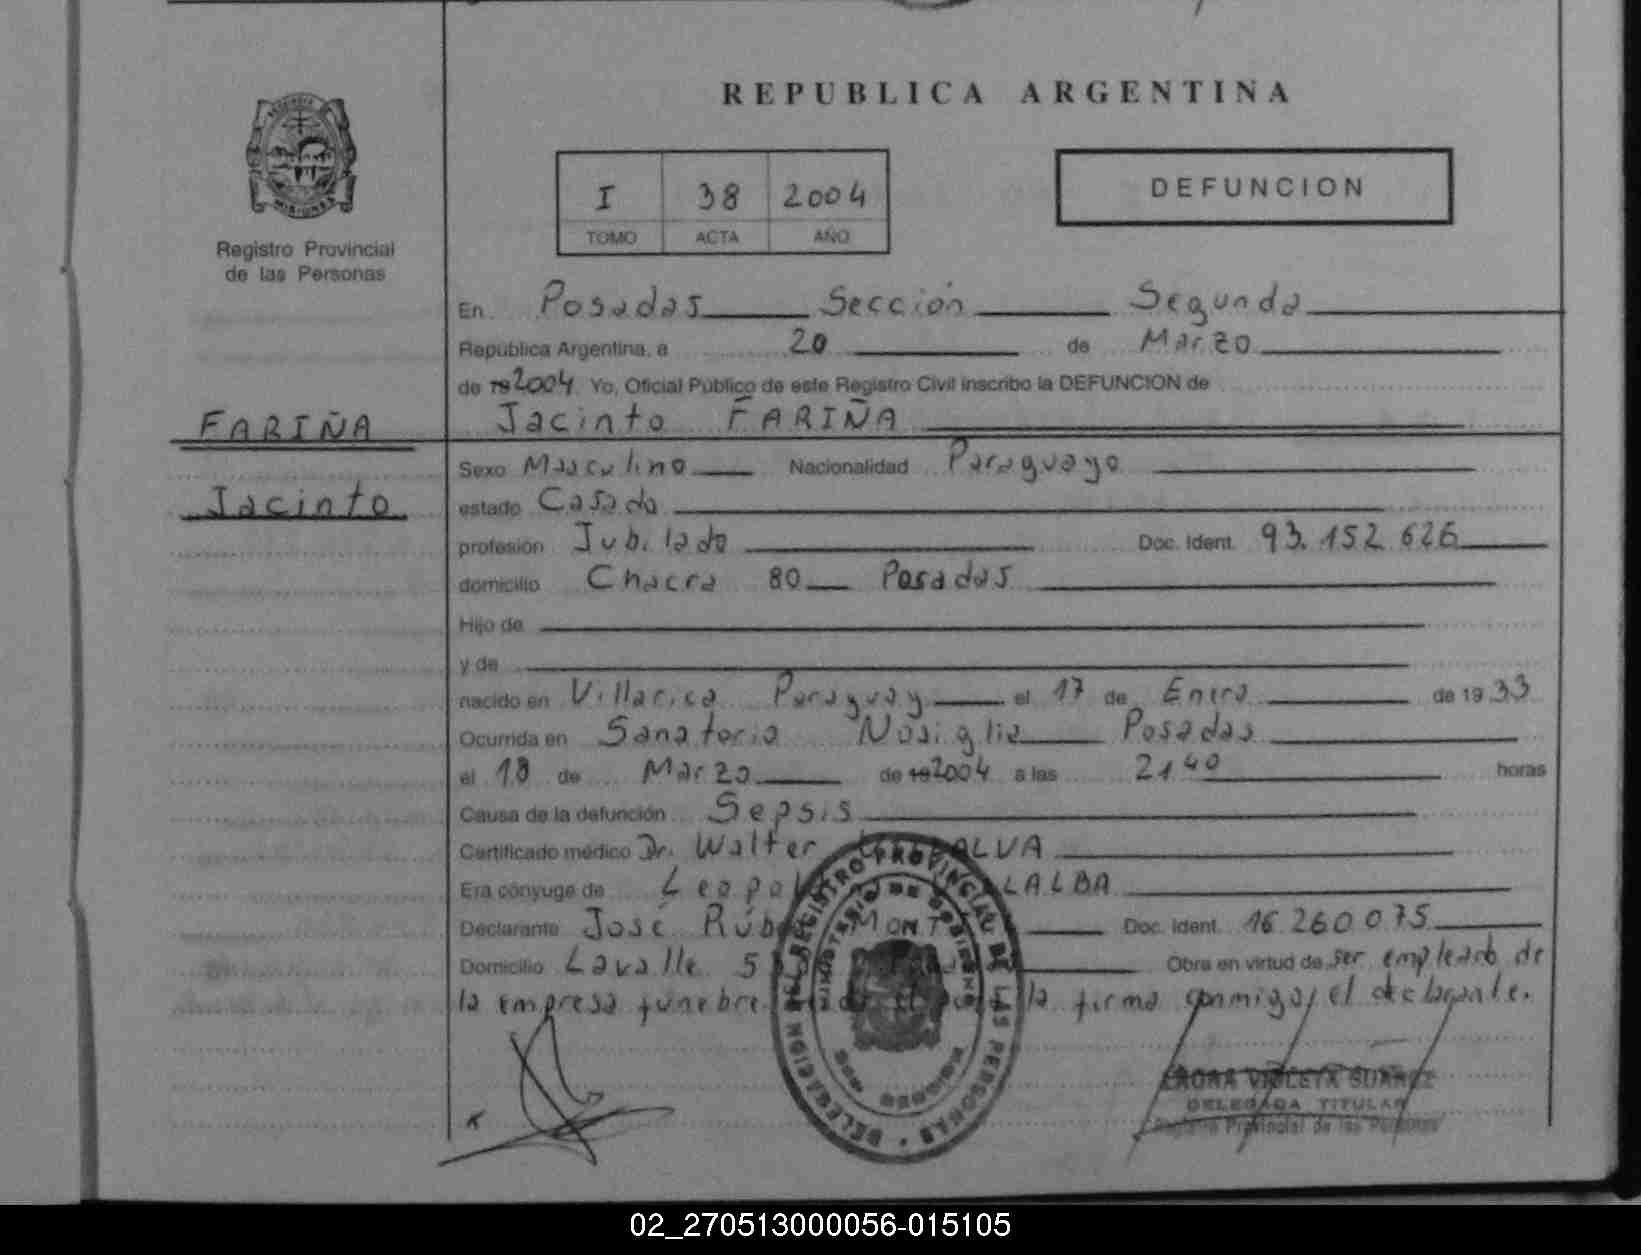 REPUBLICA ARGENTINA
I 38 2004
TOMO ACTA AÑO
DEFUNCION
MISIONES
Registro Provincial
de las Personas
FARIÑA
Jacinto
En Posadas Sección Segunda
República Argentina, a 20 de Marzo
de 19 2004. Yo, Oficial Público de este Registro Civil inscribo la DEFUNCION de
Jacinto FARIÑA
Sexo Masculino Nacionalidad Paraguayo
estado Casado
profesión Jubilado Doc. Ident. 93.152.626
domicilio Chacra 80 Posadas
Hijo de
y de
nacido en Villarica Paraguay el 17 de Enero de 19 33
Ocurrida en Sanatorio Nosiglia Posadas
el 18 de Marzo de 19 2004 a las 21 40 horas
Causa de la defunción Sepsis
Certificado médico Dr. Walter
Era cónyuge de
Declarante José Doc. Ident. 16.260.075
Domicilio Lavalle Obra en virtud de ser empleado de
la empresa fúnebre la firma conmigo, el declarante.
DELEGACION DEL REGISTRO PROVINCIAL DE LAS PERSONAS
MINISTERIO DE GOBIERNO
VIOLETA SUAREZ
DELEGADA TITULAR
Registro Provincial de las Personas
02_270513000056-015105